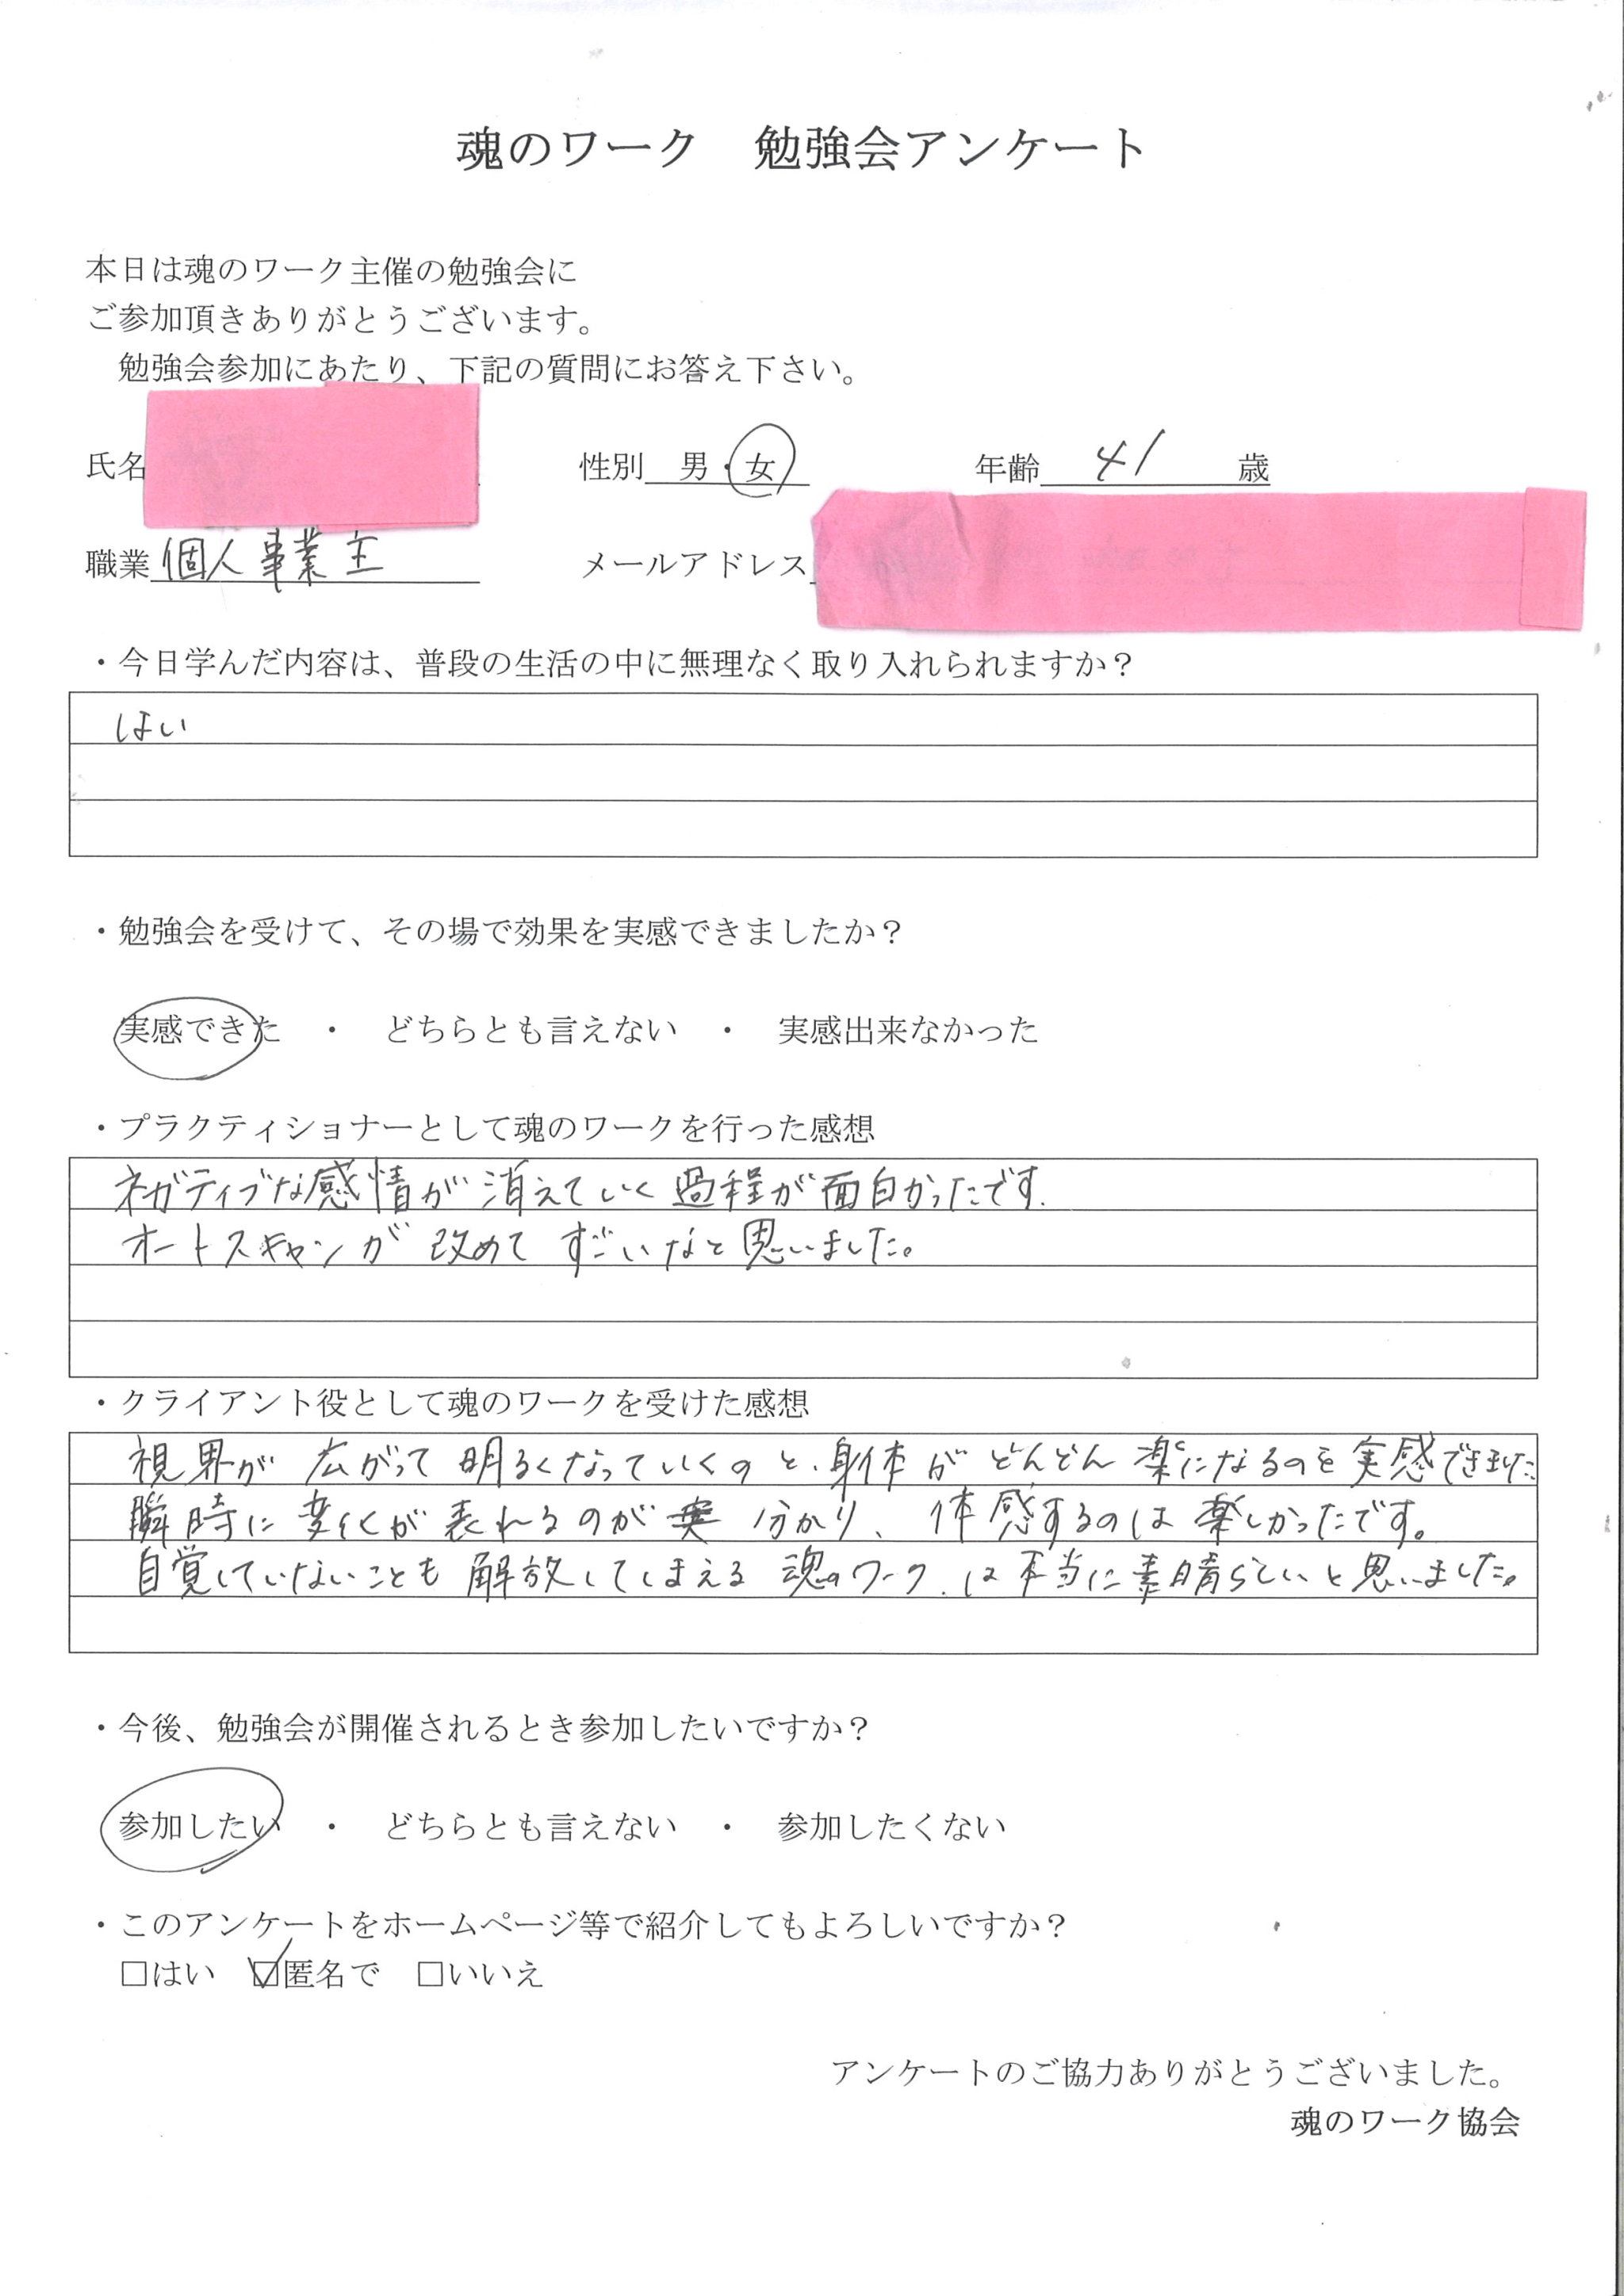 魂のワーク　勉強会アンケート
本日は魂のワーク主催の勉強会に
ご参加頂きありがとうございます。
勉強会参加にあたり、下記の質問にお答え下さい。
氏名　性別　男・女　年齢 41 歳
職業 個人事業主　メールアドレス
・今日学んだ内容は、普段の生活の中に無理なく取り入れられますか？
はい
・勉強会を受けて、その場で効果を実感できましたか？
実感できた　・　どちらとも言えない　・　実感出来なかった
・プラクティショナーとして魂のワークを行った感想
ネガティブな感情が消えていく過程が面白かったです.
オートスキャンが改めてすごいなと思いました。
・クライアント役として魂のワークを受けた感想
視界が広がって明るくなっていくのと、身体がどんどん楽になるのを実感できました。
瞬時に変化が表れるのが分かり、体感するのは楽しかったです。
自覚していないことも解放してしまえる魂のワークは本当に素晴らしいと思いました。
・今後、勉強会が開催されるとき参加したいですか？
参加したい　・　どちらとも言えない　・　参加したくない
・このアンケートをホームページ等で紹介してもよろしいですか？
□はい　☑匿名で　□いいえ
アンケートのご協力ありがとうございました。
魂のワーク協会